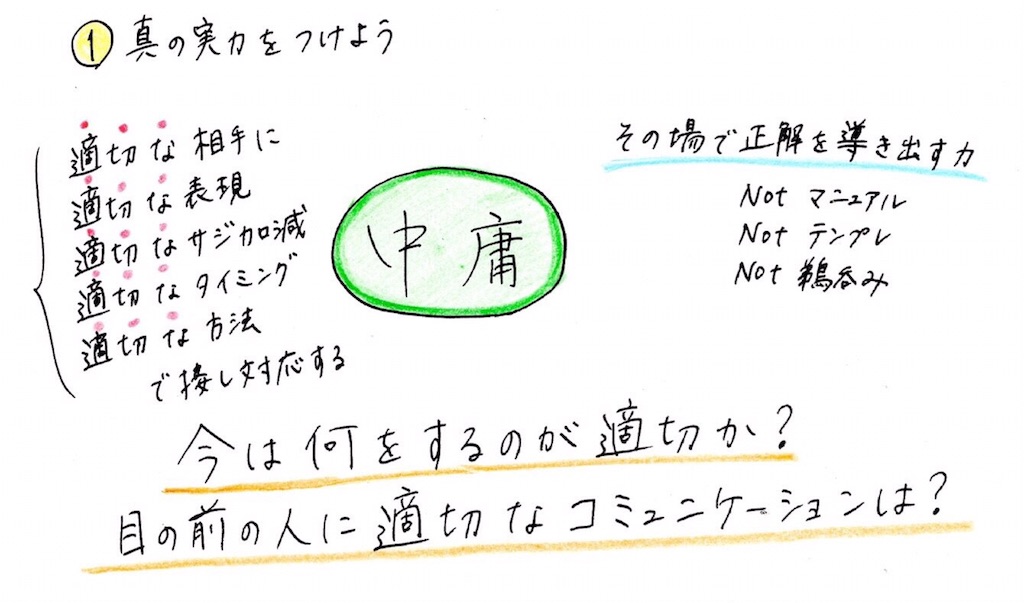 ① 真の実力をつけよう
適切な相手に
適切な表現
適切なサジ加減
適切なタイミング
適切な方法
で接し対応する
中庸
その場で正解を導き出す力
Not マニュアル
Not テンプレ
Not 鵜呑み
今は何をするのが適切か?
目の前の人に適切なコミュニケーションは?